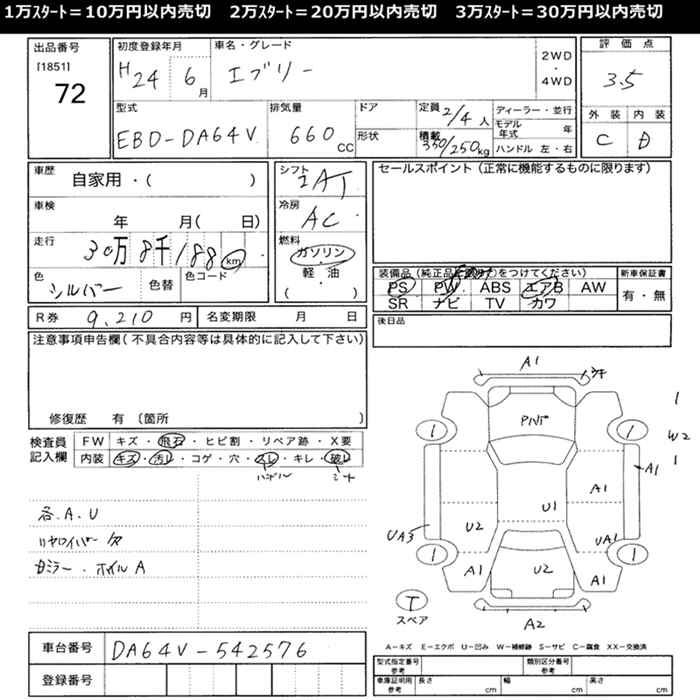 1万ｽﾀｰﾄ＝10万円以内売切　2万ｽﾀｰﾄ＝20万円以内売切　3万ｽﾀｰﾄ＝30万円以内売切
出品番号 初度登録年月 車名・グレード 2WD・4WD 評価点
[1851] H24 6月 エブリー 3.5
72
型式 排気量 ドア 定員 2/4人 ディーラー・並行 外装 内装
EBD-DA64V 660CC 形状 積載 350/250kg モデル年式 年 C D
ハンドル 左・右
車歴 自家用・( ) シフト 2AT セールスポイント (正常に機能するものに限ります)
車検 年 月( 日) 冷房 AC
走行 30万8千188km 燃料 ガソリン
軽・油
( )
色 シルバー 色替 色コード
装備品 (純正品に をつけてください) 新車保証書
PS PW ABS エアB AW 有・無
SR ナビ TV カワ
R券 9,210円 名変期限 月 日 後日品
注意事項申告欄 (不具合内容等は具体的に記入して下さい)
修復歴 有 〔箇所
検査員記入欄 FW キズ・飛石・ヒビ割・リペア跡・X要
内装 キズ・汚レ・コゲ・穴・スレ・キレ・破レ
ハンドル シート
各.A.U
ミラー・ホイルA
A1
1 1
1
W2
1
A1
A1
U1
U2
UA3
UA1
1 1
A1
U2
A1
A2
T
スペア
A－キズ E－エクボ U－凹み W－補修跡 S－サビ C－腐食 XX－交換済
車台番号 DA64V-542576
登録番号
型式指定番号 参考 類別区分番号 参考
車庫証明用 参考 長さ cm 幅 cm 高さ cm